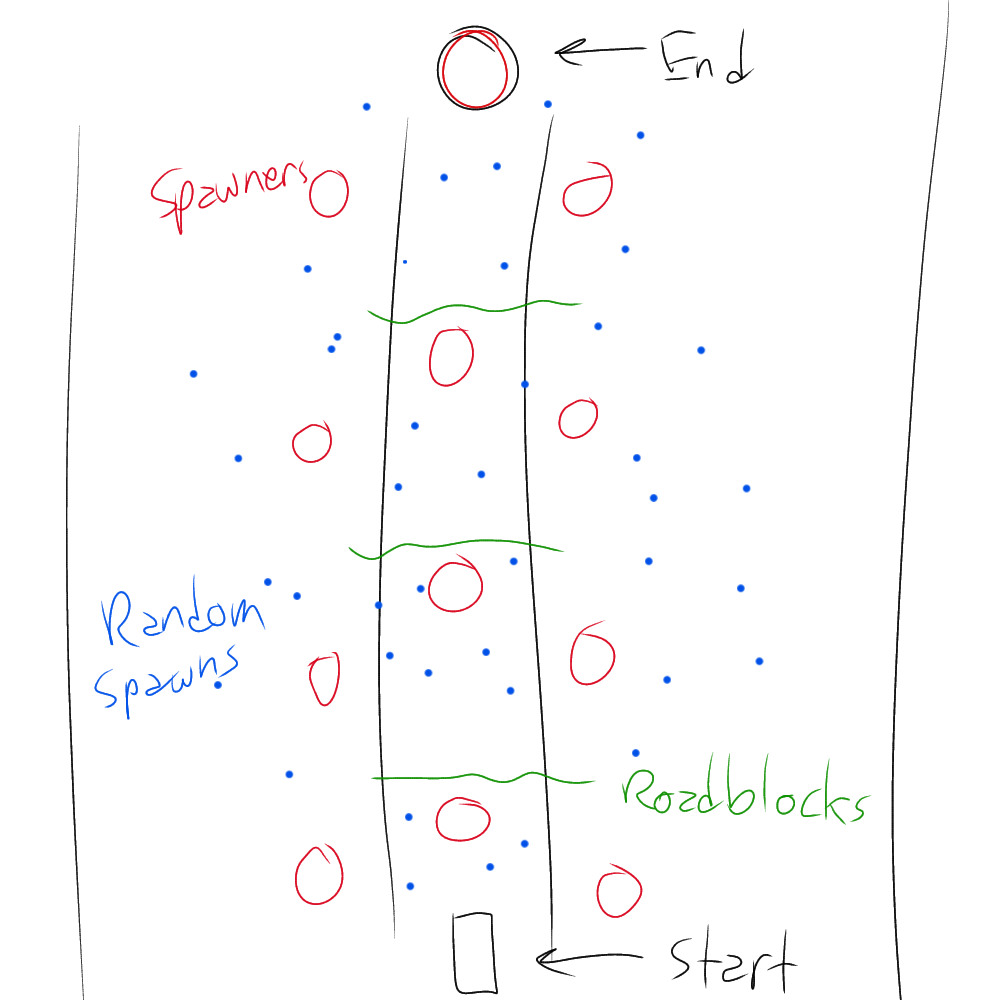 End
Spawners
Random
Spawns
Roadblocks
Start